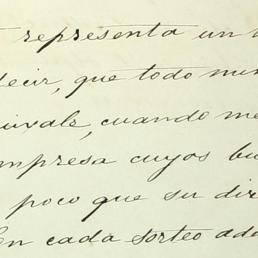 representa un
decir, que todo nu
uivale, cuando me
mpresa cuyos bu
poco que su dir
En cada sorteo ade